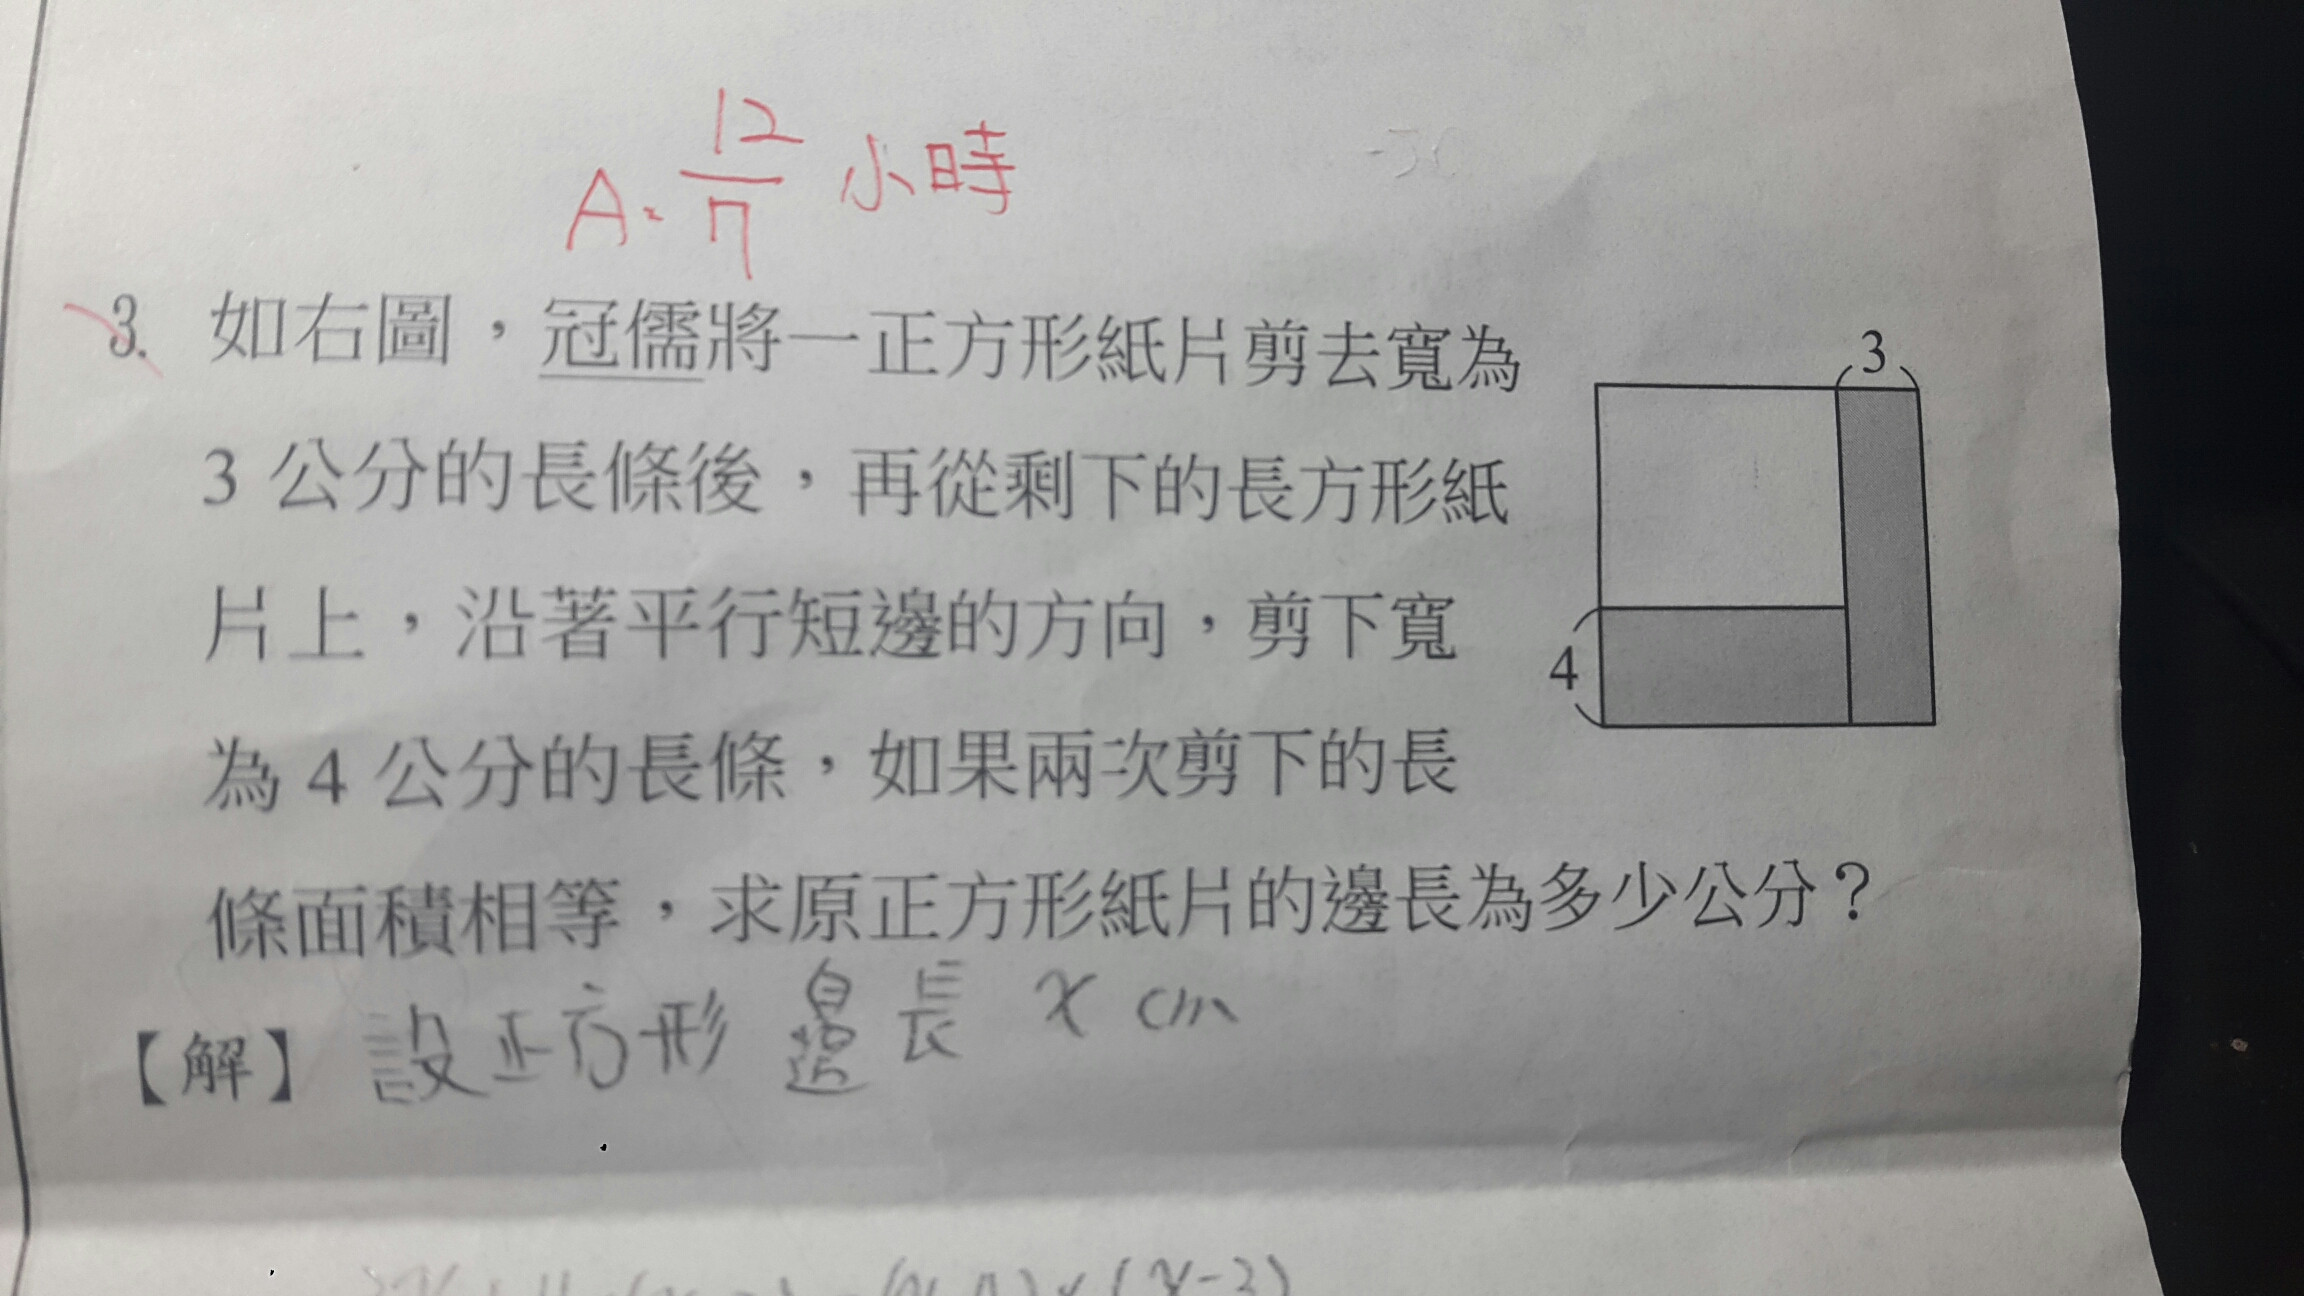 A. 12/7 小時
3. 如右圖，冠儒將一正方形紙片剪去寬為
3 公分的長條後，再從剩下的長方形紙
片上，沿著平行短邊的方向，剪下寬
為 4 公分的長條，如果兩次剪下的長
條面積相等，求原正方形紙片的邊長為多少公分？
3
4
【解】設正方形 邊長 x cm
×(x-3)